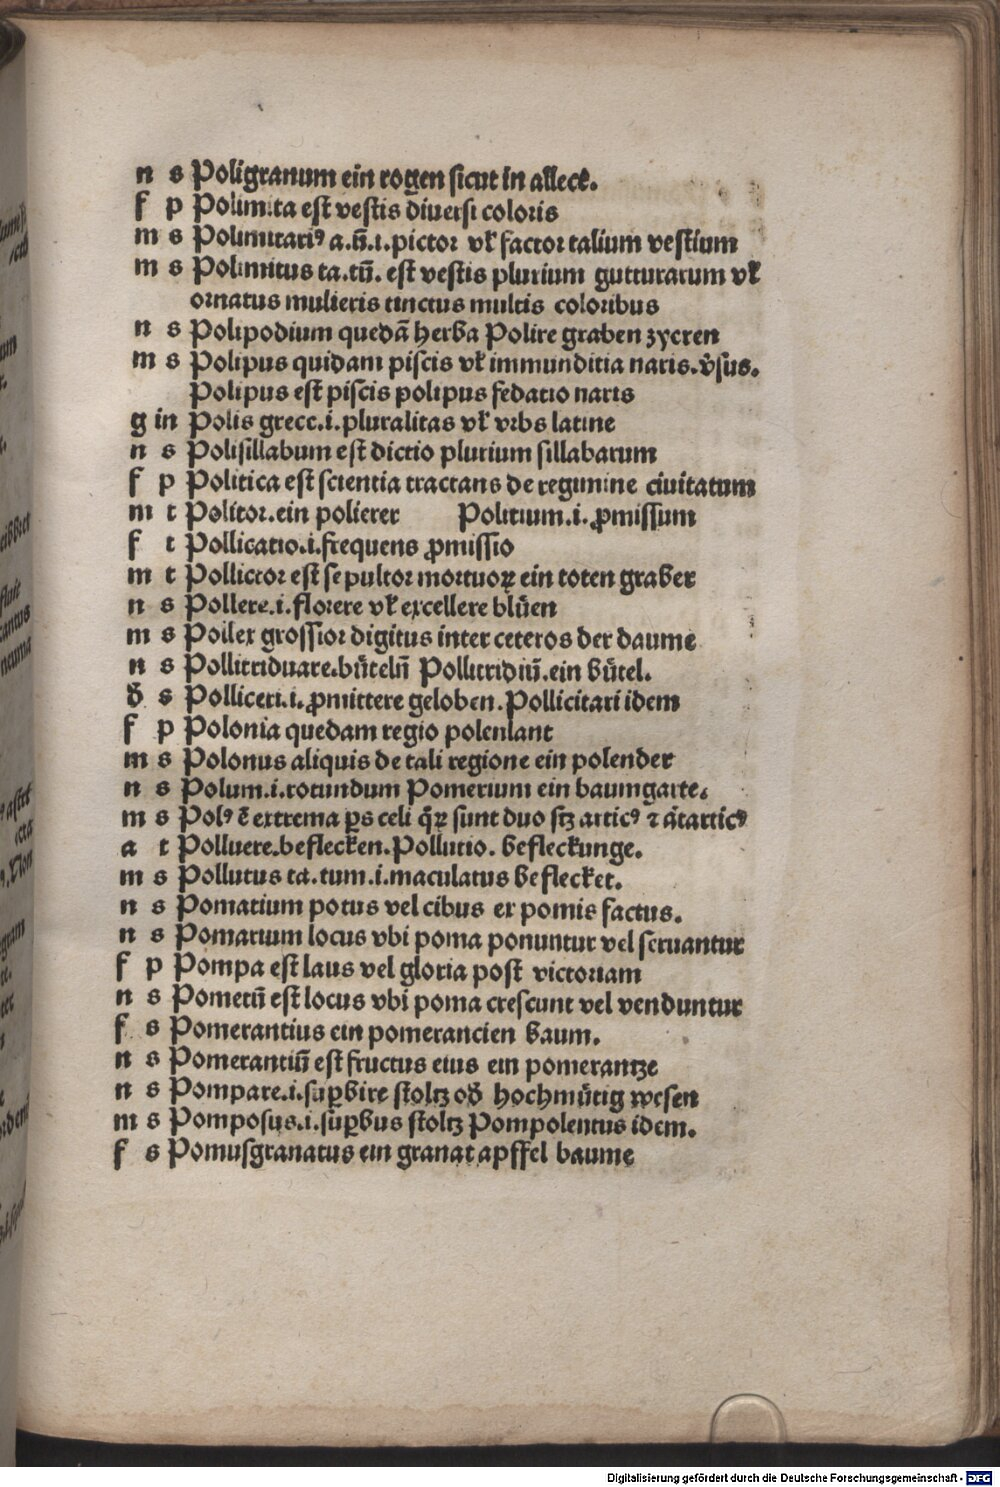 n s Poligranum ein rogen sicut in allece.
f p Polimita est vestis diuersi coloris
m s Polimitariꝰ a.ū.i.pictor vł factor talium vestium
m s Polimitus ta.tū. est vestis plurium gutturarum vł
ornatus mulieris tinctus multis coloribus
n s Polipodium quedā herba Polire graben zyeren
m s Polipus quidam piscis vł immunditia naris.v̄sus.
Polipus est piscis polipus fedatio naris
g in Polis grece.i.pluralitas vł vrbs latine
n s Polisillabum est dictio plurium sillabarum
f p Politica est scientia tractans de regimine ciuitatum
m t Politor.ein polierer Politium.i.ꝓmissum
f t Pollicatio.i.frequens ꝓmissio
m t Pollictor est sepultor mortuoꝝ ein toten graber
n s Pollere.i.florere vł excellere blůen
m s Pollex grossior digitus inter ceteros der daume
n s Pollitriduare.bůtelū Pollitridiū.ein bůtel.
đ s Polliceri.i.ꝓmittere geloben.Pollicitari idem
f p Polonia quedam regio polenlant
m s Polonus aliquis de tali regione ein polender
n s Polum.i.rotundum Pomerium ein baumgarte.
m s Polꝰ ē extrema ꝑs celi q̄ꝝ sunt duo sꝫ articꝰ ⁊ ātarticꝰ
a t Polluere.beflecken.Pollutio. befleckunge.
m s Pollutus ta.tum.i.maculatus beflecket.
n s Pomatium potus vel cibus ex pomis factus.
n s Pomarium locus vbi poma ponuntur vel seruantur
f p Pompa est laus vel gloria post victoriam
n s Pometū est locus vbi poma crescunt vel venduntur
f s Pomerantius ein pomerancien baum.
n s Pomerantiū est fructus eius ein pomerantze
n s Pompare.i.suꝑbire stoltz ođ hochmůtig wesen
m s Pomposus.i.suꝑbus stoltz Pompolentus idem.
f s Pomusgranatus ein granat apffel baume
Digitalisierung gefördert durch die Deutsche Forschungsgemeinschaft - DFG